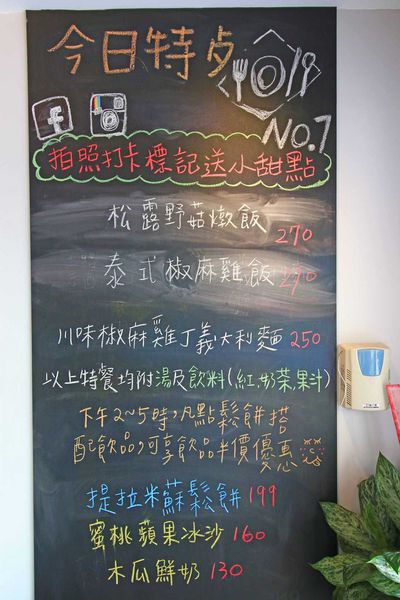 今日特歺
NO.7
f
拍照打卡標記送小甜點
松露野菇燉飯 270
泰式椒麻雞飯 270
川味椒麻雞丁義大利麵 250
以上特餐均附湯及飲料(紅.奶茶.果汁)
下午2~5時,凡點鬆餅搭
配飲品,可享飲品半價優惠
提拉米蘇鬆餅 199
蜜桃蘋果冰沙 160
木瓜鮮奶 130